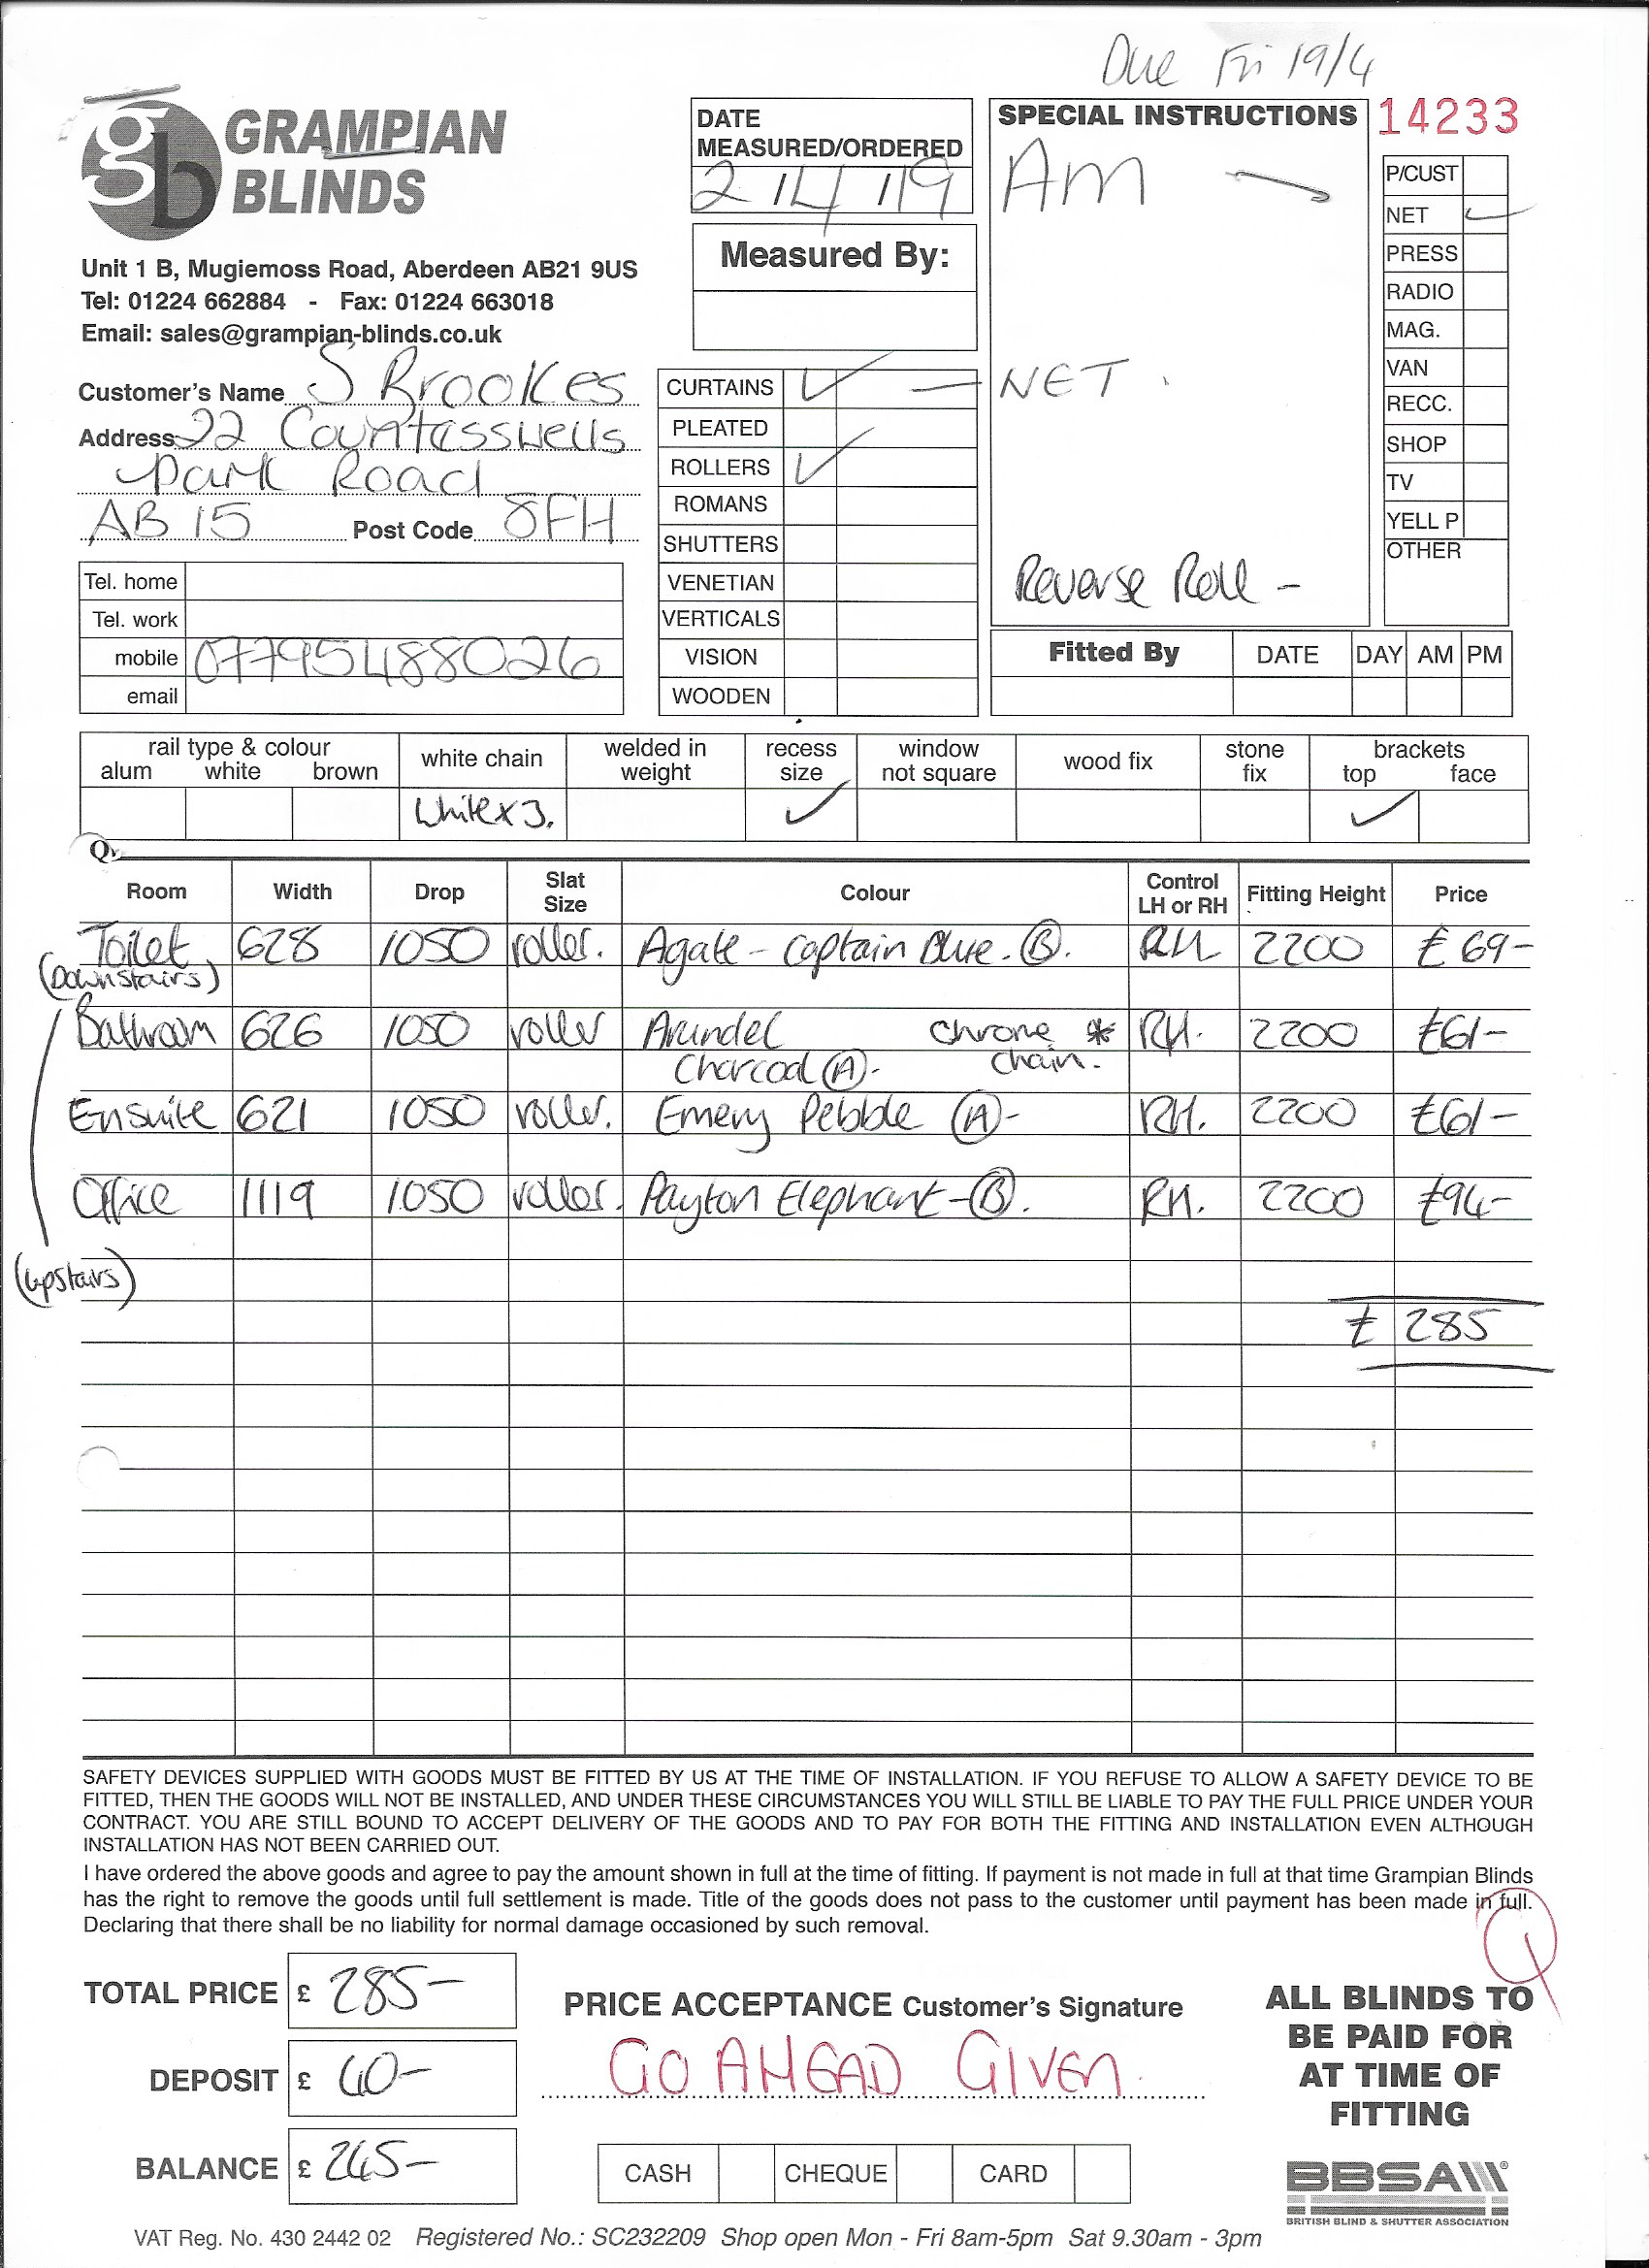 Due Fri 19/4
gb GRAMPIAN
BLINDS
Unit 1 B, Mugiemoss Road, Aberdeen AB21 9US
Tel: 01224 662884 - Fax: 01224 663018
Email: sales@grampian-blinds.co.uk
DATE
MEASURED/ORDERED
2/4/19
Measured By:
SPECIAL INSTRUCTIONS
AM
NET.
Reverse Roll -
14233
P/CUST
NET ✓
PRESS
RADIO
MAG.
VAN
RECC.
SHOP
TV
YELL P
OTHER
Customer's Name S Brookes
Address 22 Countasswells
Park Road
AB15 Post Code 8FH
Tel. home
Tel. work
mobile 07795488026
email
CURTAINS ✓ —
PLEATED
ROLLERS ✓
ROMANS
SHUTTERS
VENETIAN
VERTICALS
VISION
WOODEN
Fitted By DATE DAY AM PM
rail type & colour
alum white brown
white chain
welded in weight
recess size
window not square
wood fix
stone fix
brackets
top face
White x 3. ✓ ✓
Room Width Drop Slat Size Colour Control LH or RH Fitting Height Price
Toilet 628 1050 roller. Agate - Captain Blue. (B). RH 2200 £69-
(Downstairs)
Bathroom 626 1050 roller Arundel chrome * RH. 2200 £61-
Charcoal (A). chain.
Ensuite 621 1050 roller. Emery Pebble (A)- RH. 2200 £61-
Office 1119 1050 roller. Payton Elephant - (B). RH. 2200 £94-
(upstairs)
£ 285
SAFETY DEVICES SUPPLIED WITH GOODS MUST BE FITTED BY US AT THE TIME OF INSTALLATION. IF YOU REFUSE TO ALLOW A SAFETY DEVICE TO BE
FITTED, THEN THE GOODS WILL NOT BE INSTALLED, AND UNDER THESE CIRCUMSTANCES YOU WILL STILL BE LIABLE TO PAY THE FULL PRICE UNDER YOUR
CONTRACT. YOU ARE STILL BOUND TO ACCEPT DELIVERY OF THE GOODS AND TO PAY FOR BOTH THE FITTING AND INSTALLATION EVEN ALTHOUGH
INSTALLATION HAS NOT BEEN CARRIED OUT.
I have ordered the above goods and agree to pay the amount shown in full at the time of fitting. If payment is not made in full at that time Grampian Blinds
has the right to remove the goods until full settlement is made. Title of the goods does not pass to the customer until payment has been made in full.
Declaring that there shall be no liability for normal damage occasioned by such removal.
TOTAL PRICE £ 285-
DEPOSIT £ 40-
BALANCE £ 245-
PRICE ACCEPTANCE Customer's Signature
GO AHEAD GIVEN.
CASH CHEQUE CARD
ALL BLINDS TO
BE PAID FOR
AT TIME OF
FITTING
BBSA ®
BRITISH BLIND & SHUTTER ASSOCIATION
VAT Reg. No. 430 2442 02 Registered No.: SC232209 Shop open Mon - Fri 8am-5pm Sat 9.30am - 3pm